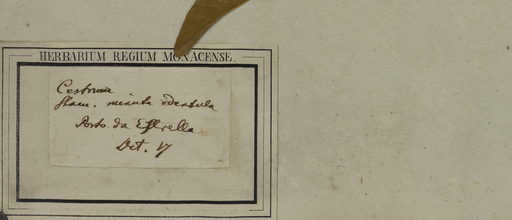 HERBARIUM REGIUM MONACENSE.
Cestrum
stam. minuta edentula
Porto da Estrella
Oct. 17